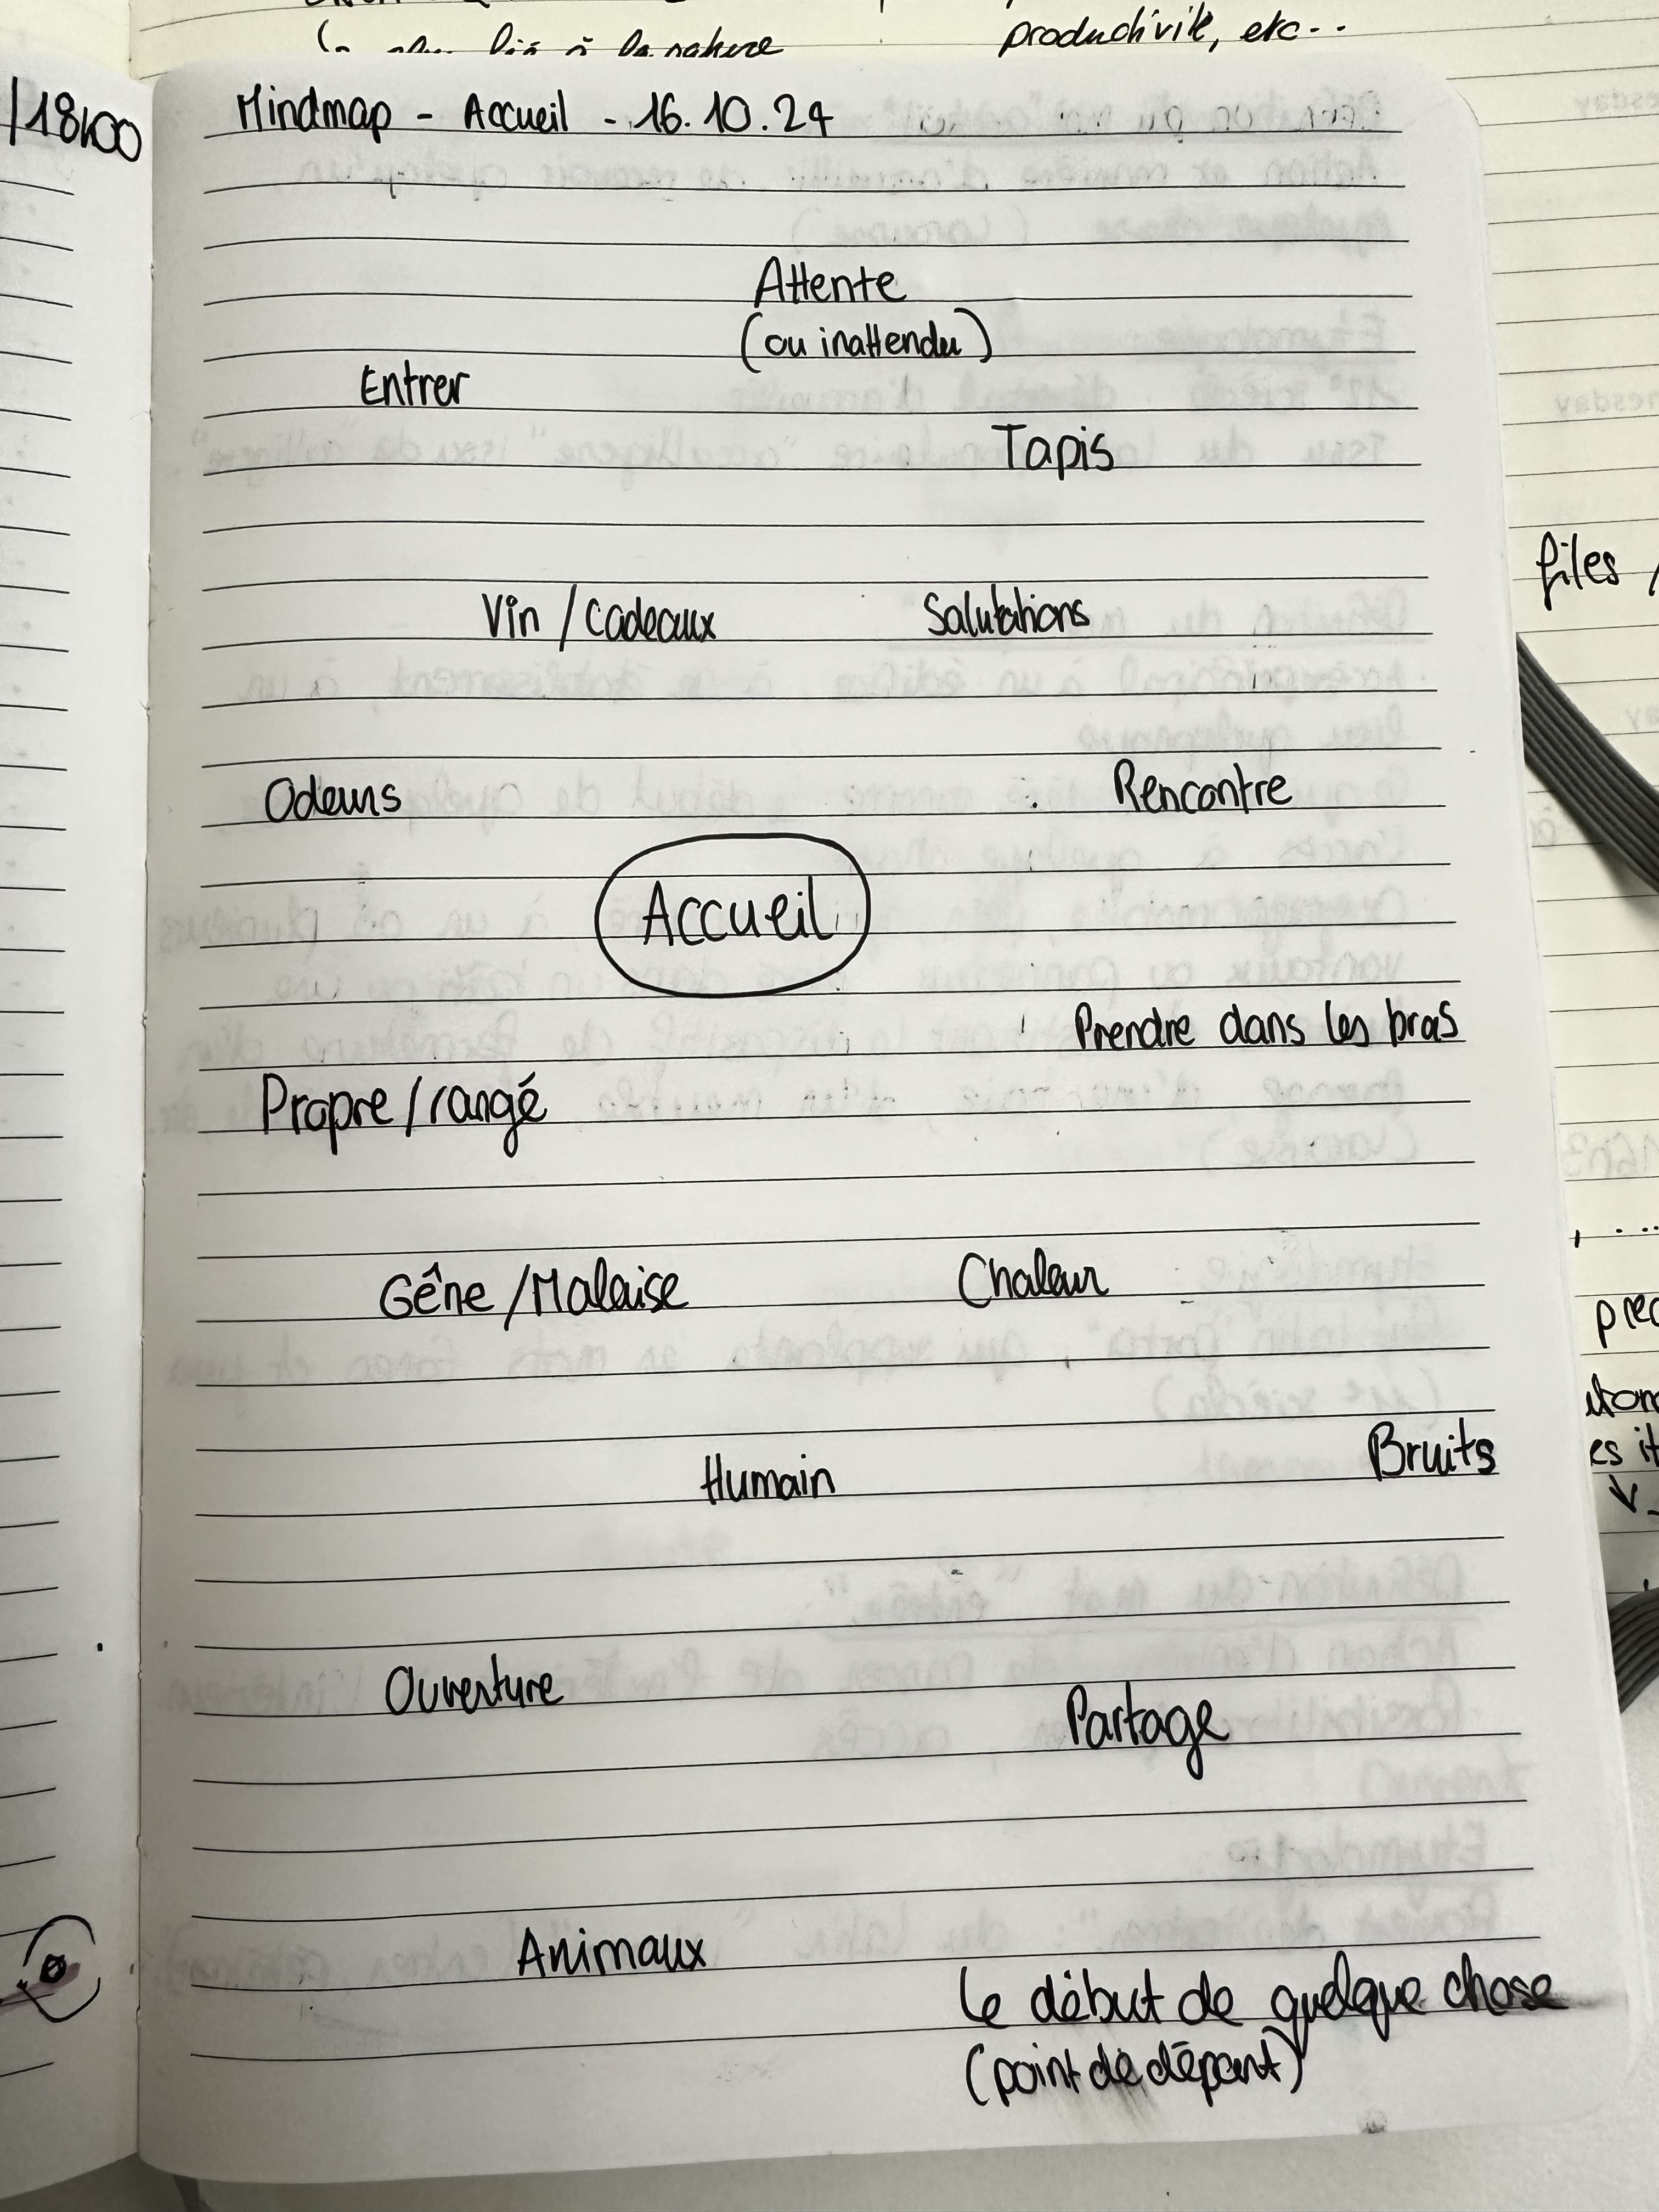 productivité, etc...
/18h00
Mindmap - Accueil - 16.10.24
Attente
(ou inattendu)
Entrer
Tapis
files /
Vin / Cadeaux
Salutations
Odeurs
Rencontre
Accueil
Prendre dans les bras
Propre / rangé
Gêne / Malaise
Chaleur
Humain
Bruits
Ouverture
Partage
Animaux
Le début de quelque chose
(point de départ)